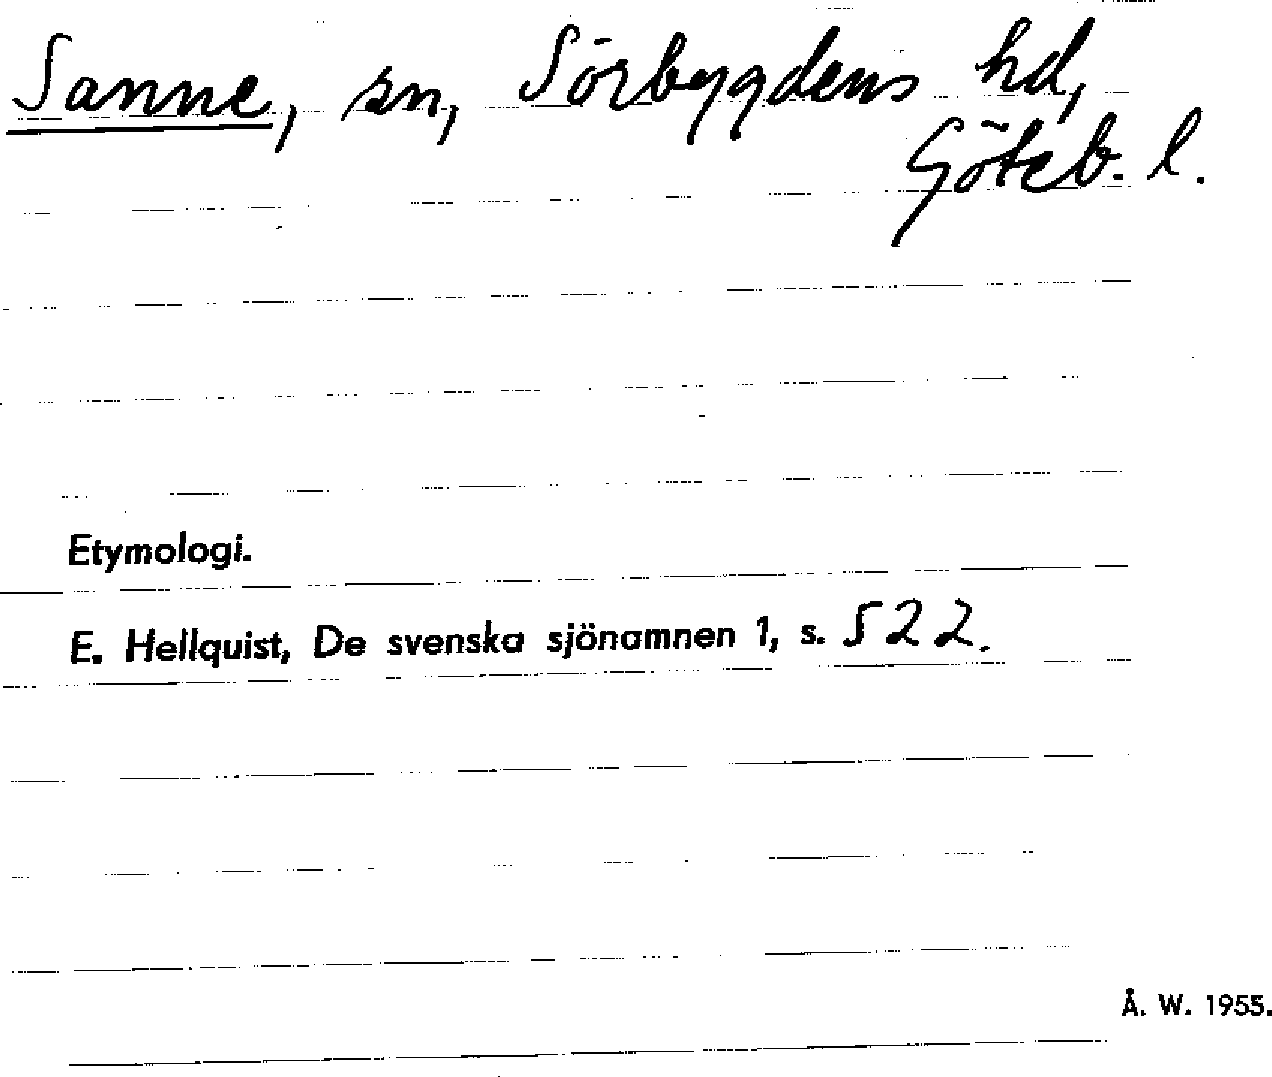 Sanne, sn, Sörbygdens hd,
Göteb. l.
Etymologi.
E. Hellquist, De svenska sjönamnen 1, s. 522.
Å. W. 1955.